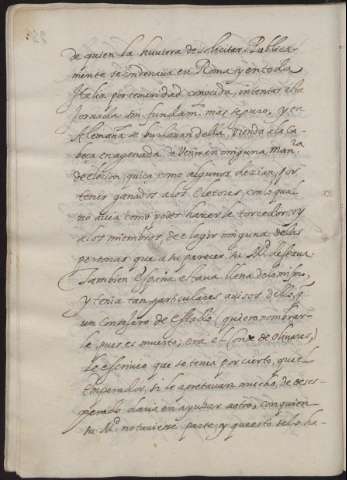 de quien la huuiera de solicitar. Publica
mente se condenaua en Roma, y en toda
Italia por temeridad conocida, intentar esta
Jornada sin fundam.to mas seguro, y en
Alemaña se burlauan della, viendo a la ca
beça enagenada de venir en ninguna man.ra
de election, quiça como algunos dezian, por
tener ganados a los Eletores, con lo qual
no auia como poder hazerle torcedor, y
a los miembros, de elegir ninguna de las
personas que a su parecer su M.d desseaua
Tambien España estaua llena de lo mismo,
y tenia tan particulares auisos dello, q̃
un Consejero de Estado, (quiero nombrar-
le pues es muerto, era el Conde de Oliuares,)
le escriue que se tenia por cierto, que el
Emperador, si le apretauan mucho, de deses-
perado daria en ayudar a otro, con quien
su M.d no tuuiesse parte, y que esto se lo ha-